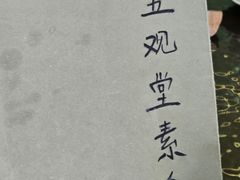 五观堂素